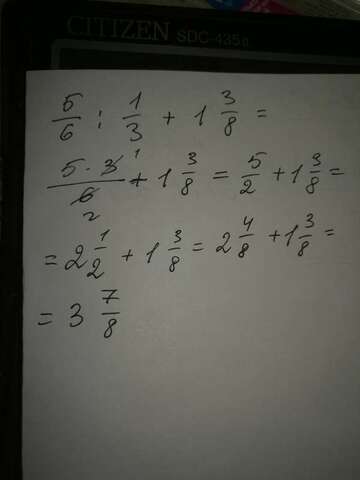 CITIZEN SDC-435
5/6 : 1/3 + 1 3/8 =
5·3/6 1 2 + 1 3/8 = 5/2 + 1 3/8 =
= 2 1/2 + 1 3/8 = 2 4/8 + 1 3/8 =
= 3 7/8